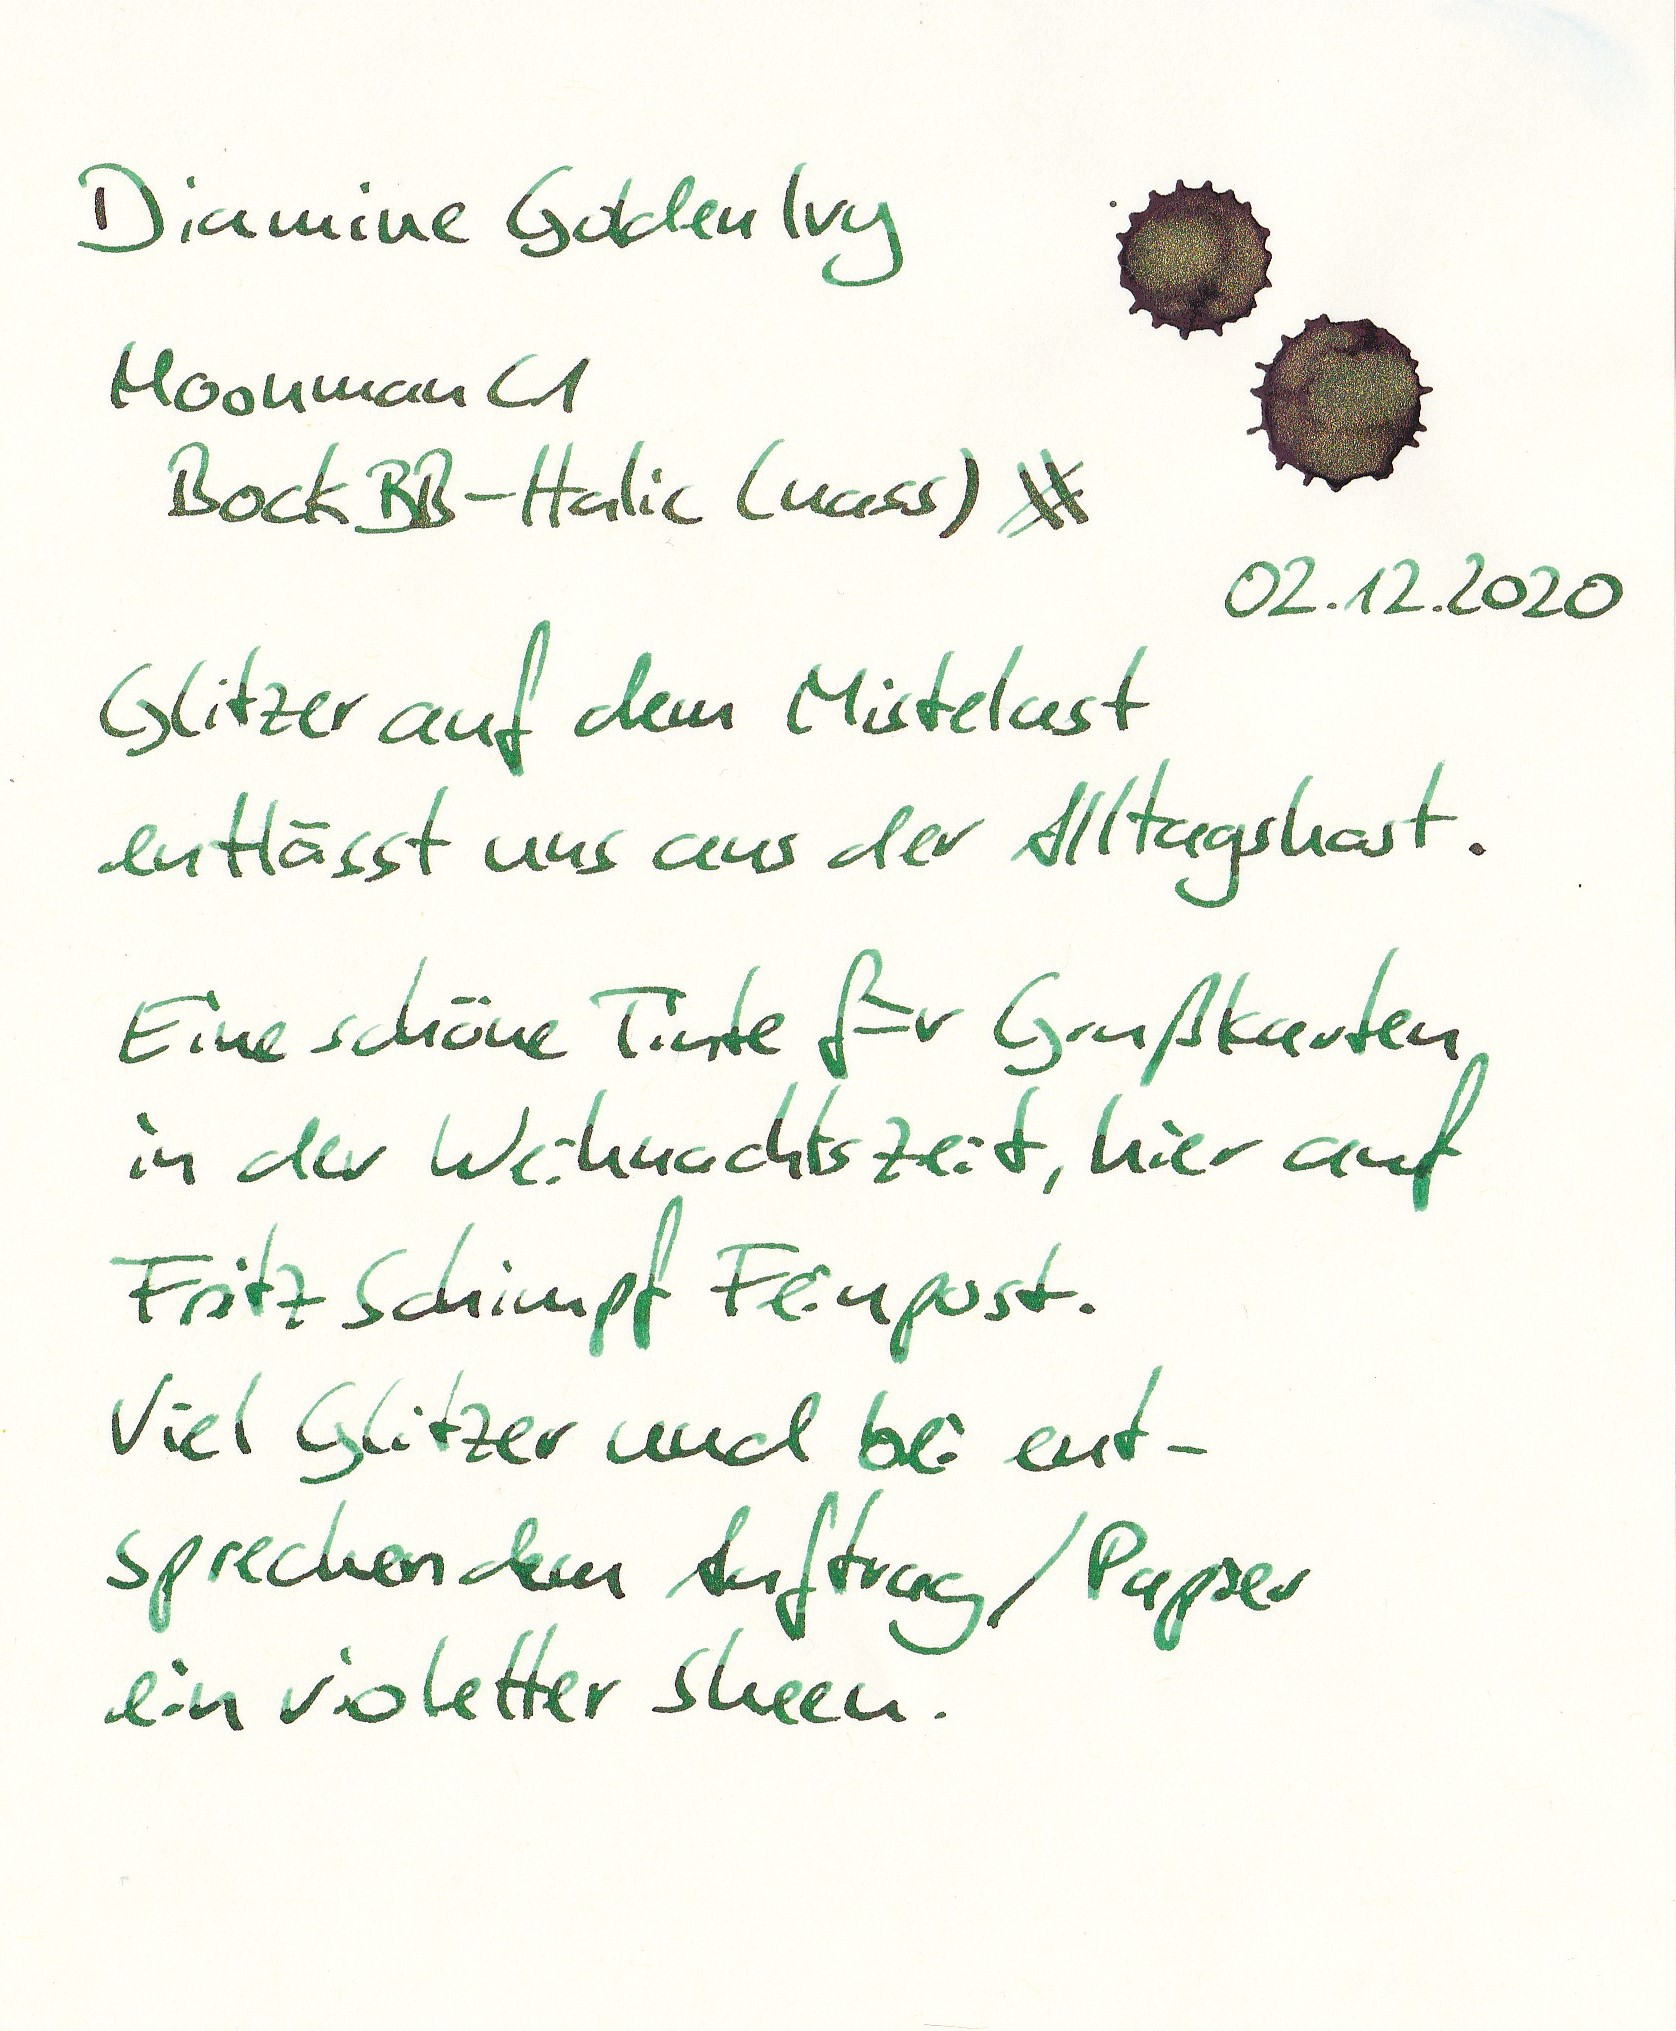 Diamine Golden Ivy
Moonman C1
Bock BB-Italic (nass) #
02.12.2020
Glitzer auf dem Mistelast
entlässt uns aus der Alltagshast.
Eine schöne Tinte für Grußkarten
in der Weihnachtszeit, hier auf
Fritz Schimpf Feinpost.
Viel Glitzer und bei ent-
sprechendem Auftrag/Papier
ein violetter Sheen.